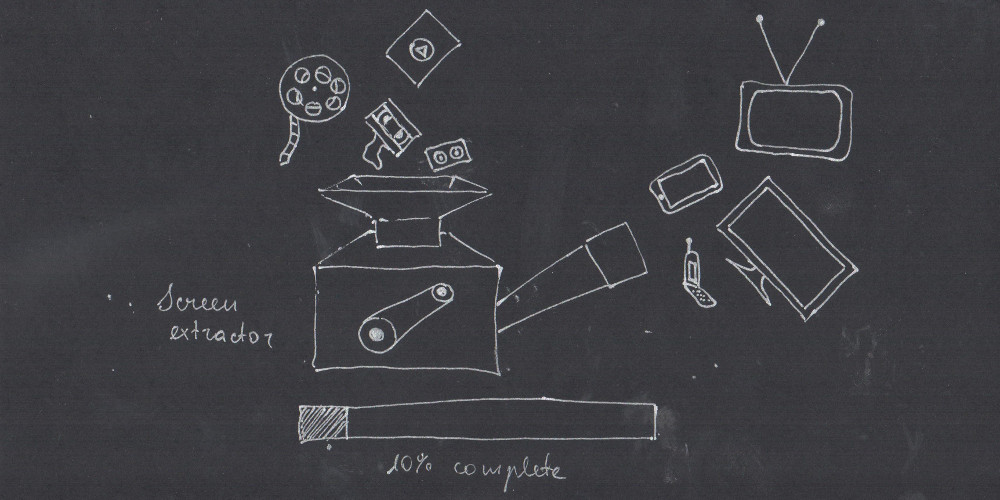 Screen
extractor
10% complete